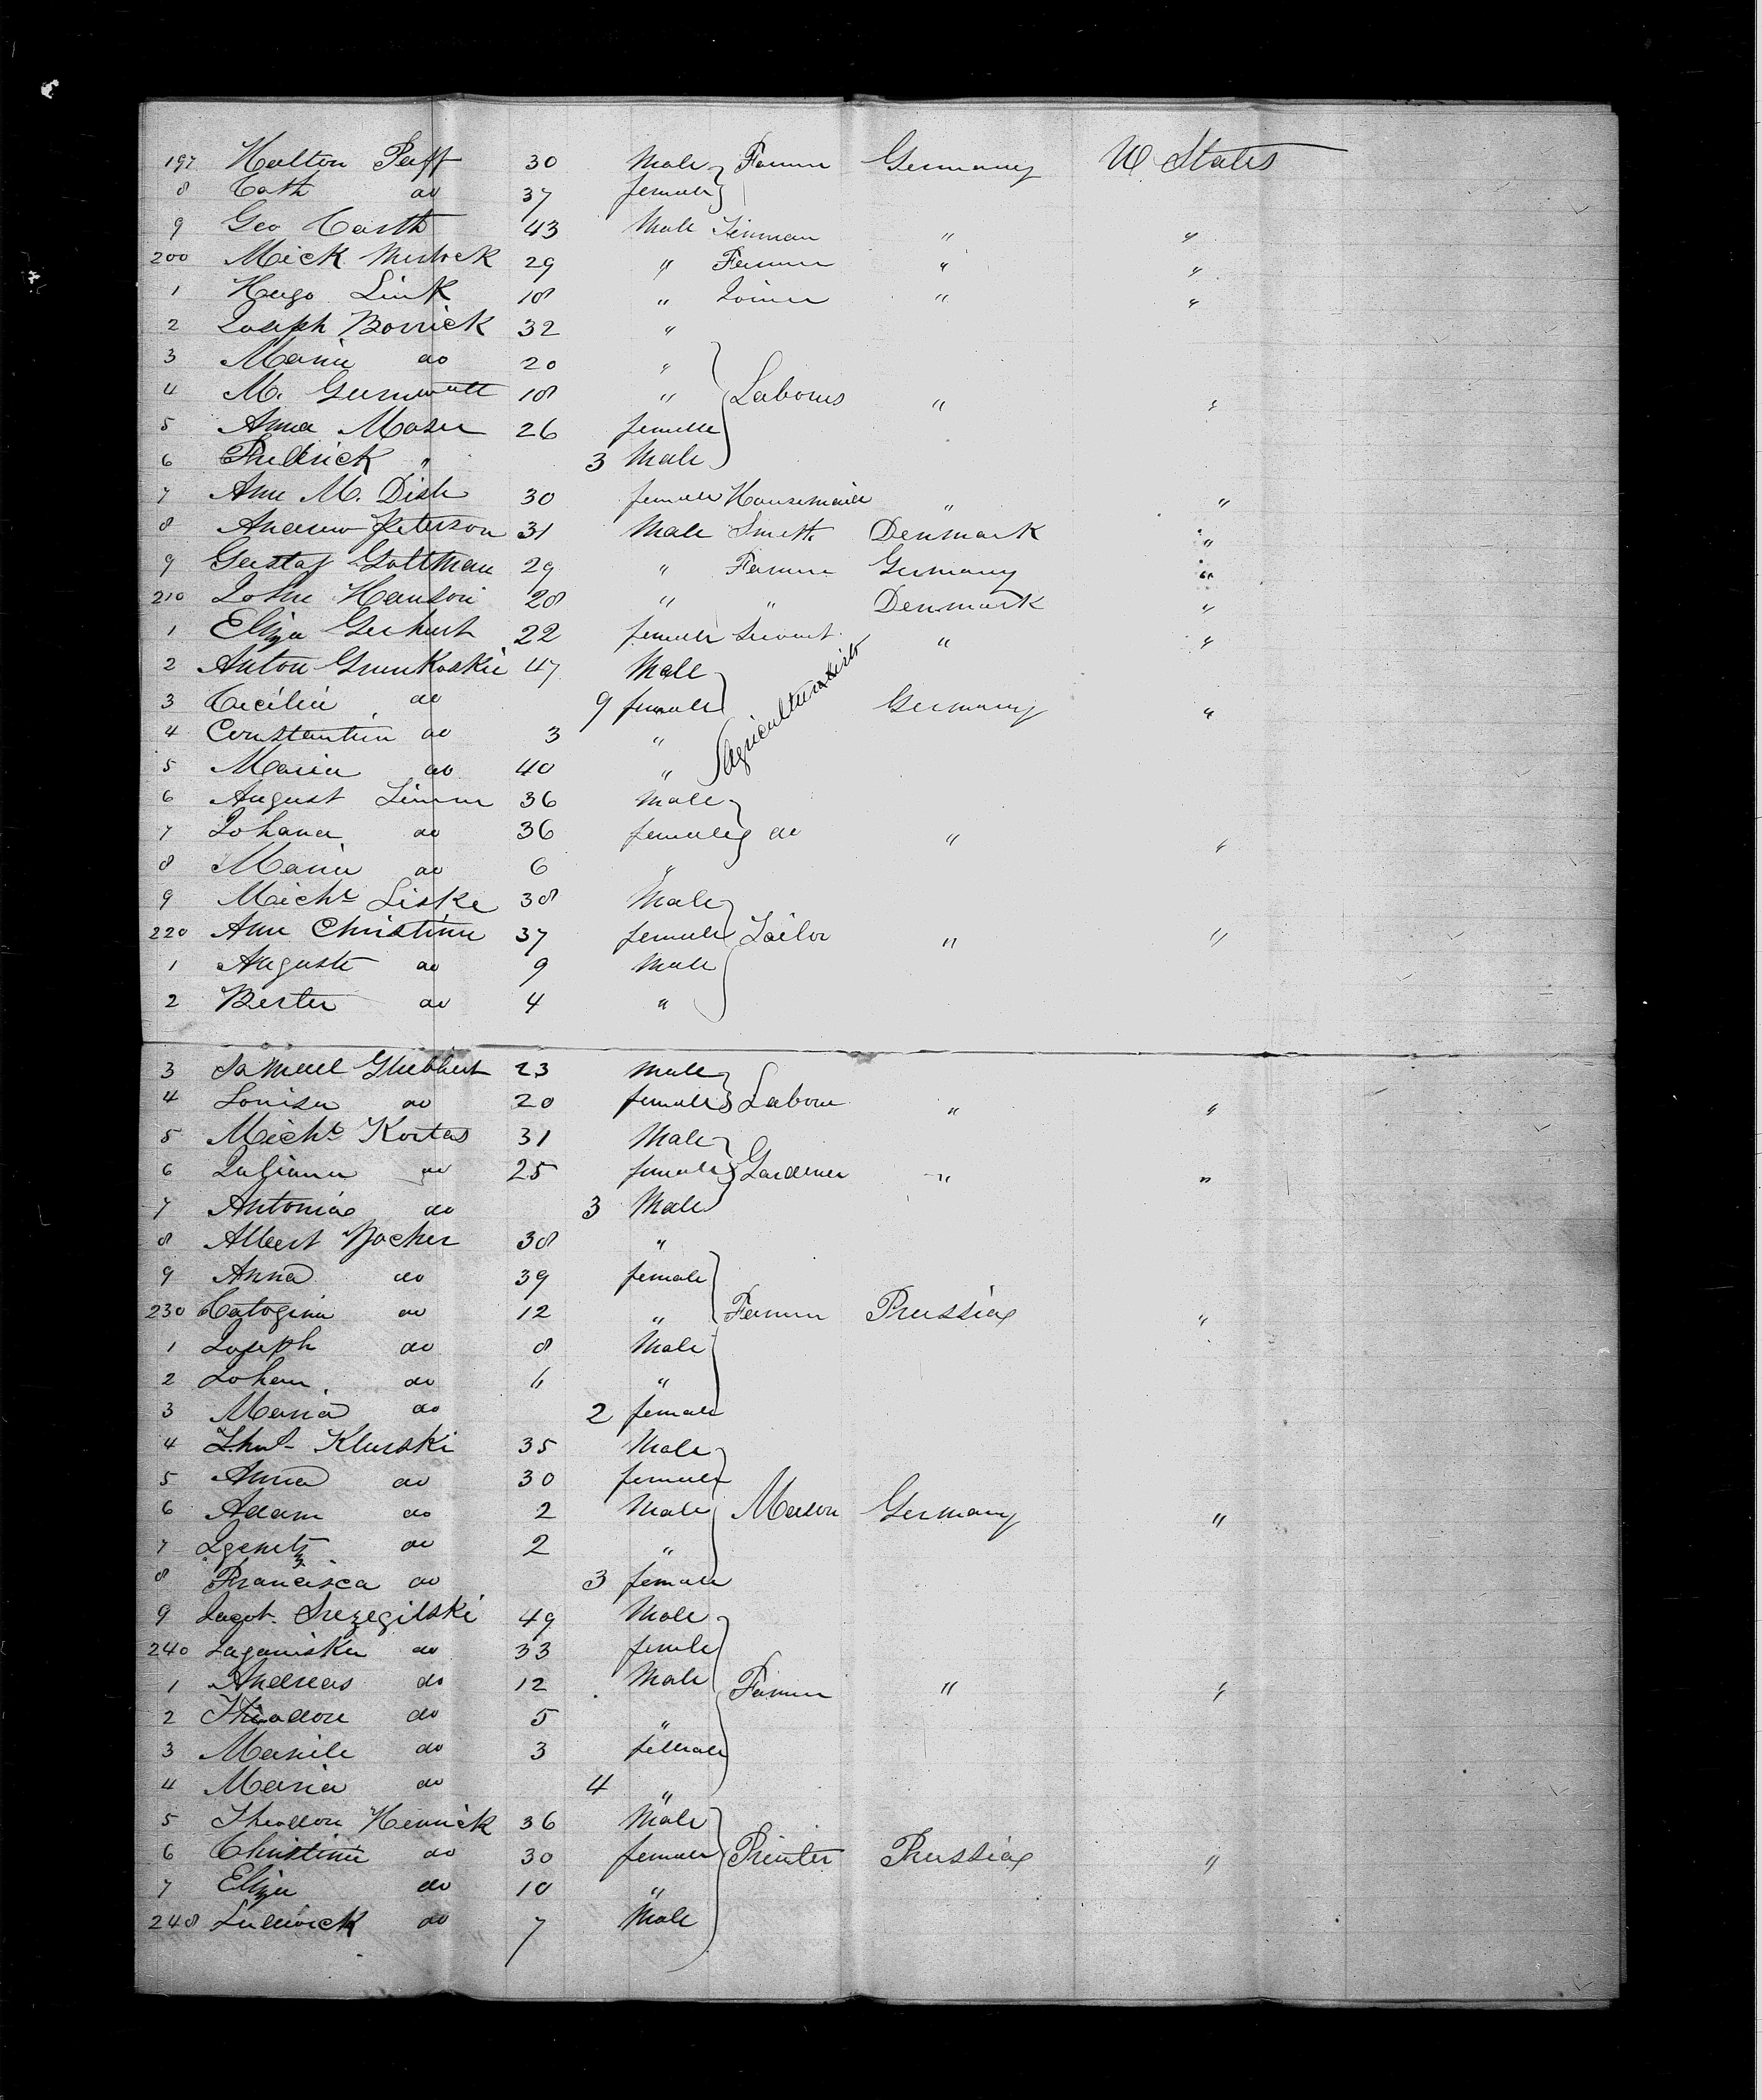 197 Halton Paff 30 Male Farmer Germany U States
8 Cath do 37 female
9 Geo Carth 43 Male Tinman " "
200 Mick 29 " Farmer " "
1 Hugo Link 18 " Joiner " "
2 Joseph Borrick 32 "
3 Marie do 20 "
4 M. 18 " Laborers " "
5 Anna Maser 26 female
6 Fredrick " 3 Male
7 Ann M. Dish 30 female Housemaid " "
8 Andrew Peterson 31 Male Smith Denmark "
9 Gustaf Goltman 29 " Farmer Germany "
210 John Hanson 28 " " Denmark "
1 Eliza Gerhart 22 female Servant " "
2 Anton Grunkoskie 47 Male
3 Cecilia do 9 female Agriculturists Germany "
4 Constantin do 3 "
5 Maria do 40 "
6 August Limm 36 Male
7 Johana do 36 female do " "
8 Maria do 6 "
9 Michl Liske 38 Male
220 Ann Christine 37 female Tailor " "
1 Auguste do 9 Male
2 Berter do 4 "
3 Samuel 23 Male
4 Louisa do 20 female Laborer " "
5 Michl Kortas 31 Male
6 Juliana do 25 female Gardener " "
7 Antonia do 3 Male
8 Albert Bocher 38 "
9 Anna do 39 female
230 Catogina do 12 " Farmer Prussia "
1 Joseph do 8 Male
2 Johan do 6 "
3 Maria do 2 female
4 Klurski 35 Male
5 Anna do 30 female
6 Adam do 2 Male Mason Germany "
7 Igentz do 2 "
8 Francisca do 3 female
9 Jacob Srezegilski 49 Male
240 Laganiska do 33 femle
1 Andreas do 12 Male Farmer " "
2 Theodore do 5 "
3 Marile do 3 female
4 Maria do 4 "
5 Theodore Hennick 36 Male
6 Christine do 30 female Printer Prussia "
7 Eliza do 10 "
248 Ludwick do 7 Male